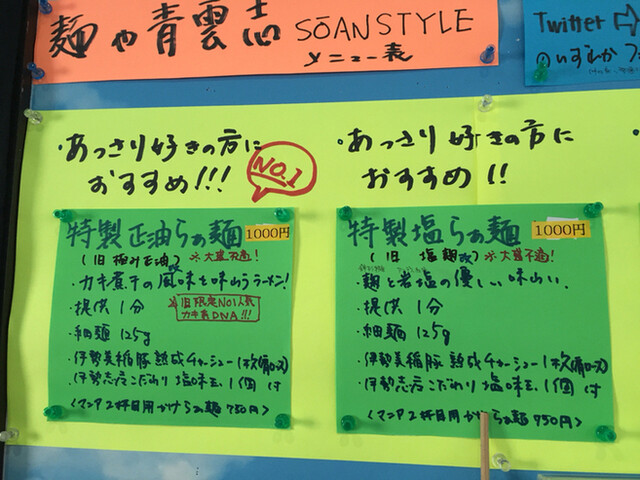 麺や青雲志 SŌAN STYLE
メニュー表
Twitter
・あっさり好きの方に
おすすめ!!!
NO.1
特製正油らぁ麺 1000円
(旧 極み正油) ※大盛不適!
・カキ煮干の風味を味わうラーメン!
・提供 1分
※旧限定NO1人気
カキ煮DNA!!!
・細麺 125g
・伊勢美稲豚 熟成チャーシュー1枚(肩ロース)
・伊勢志店こだわり 塩味玉 1個 付
<マニア2杯目用かけらぁ麺 750円>
・あっさり好きの方に
おすすめ!!
特製塩らぁ麺 1000円
(旧 塩麹改) ※大盛不適!
・麹と岩塩の優しい味わい
・提供 1分
・細麺 125g
・伊勢美稲豚 熟成チャーシュー1枚(肩ロース)
・伊勢志店こだわり 塩味玉 1個 付
<マニア2杯目用かけらぁ麺 750円>